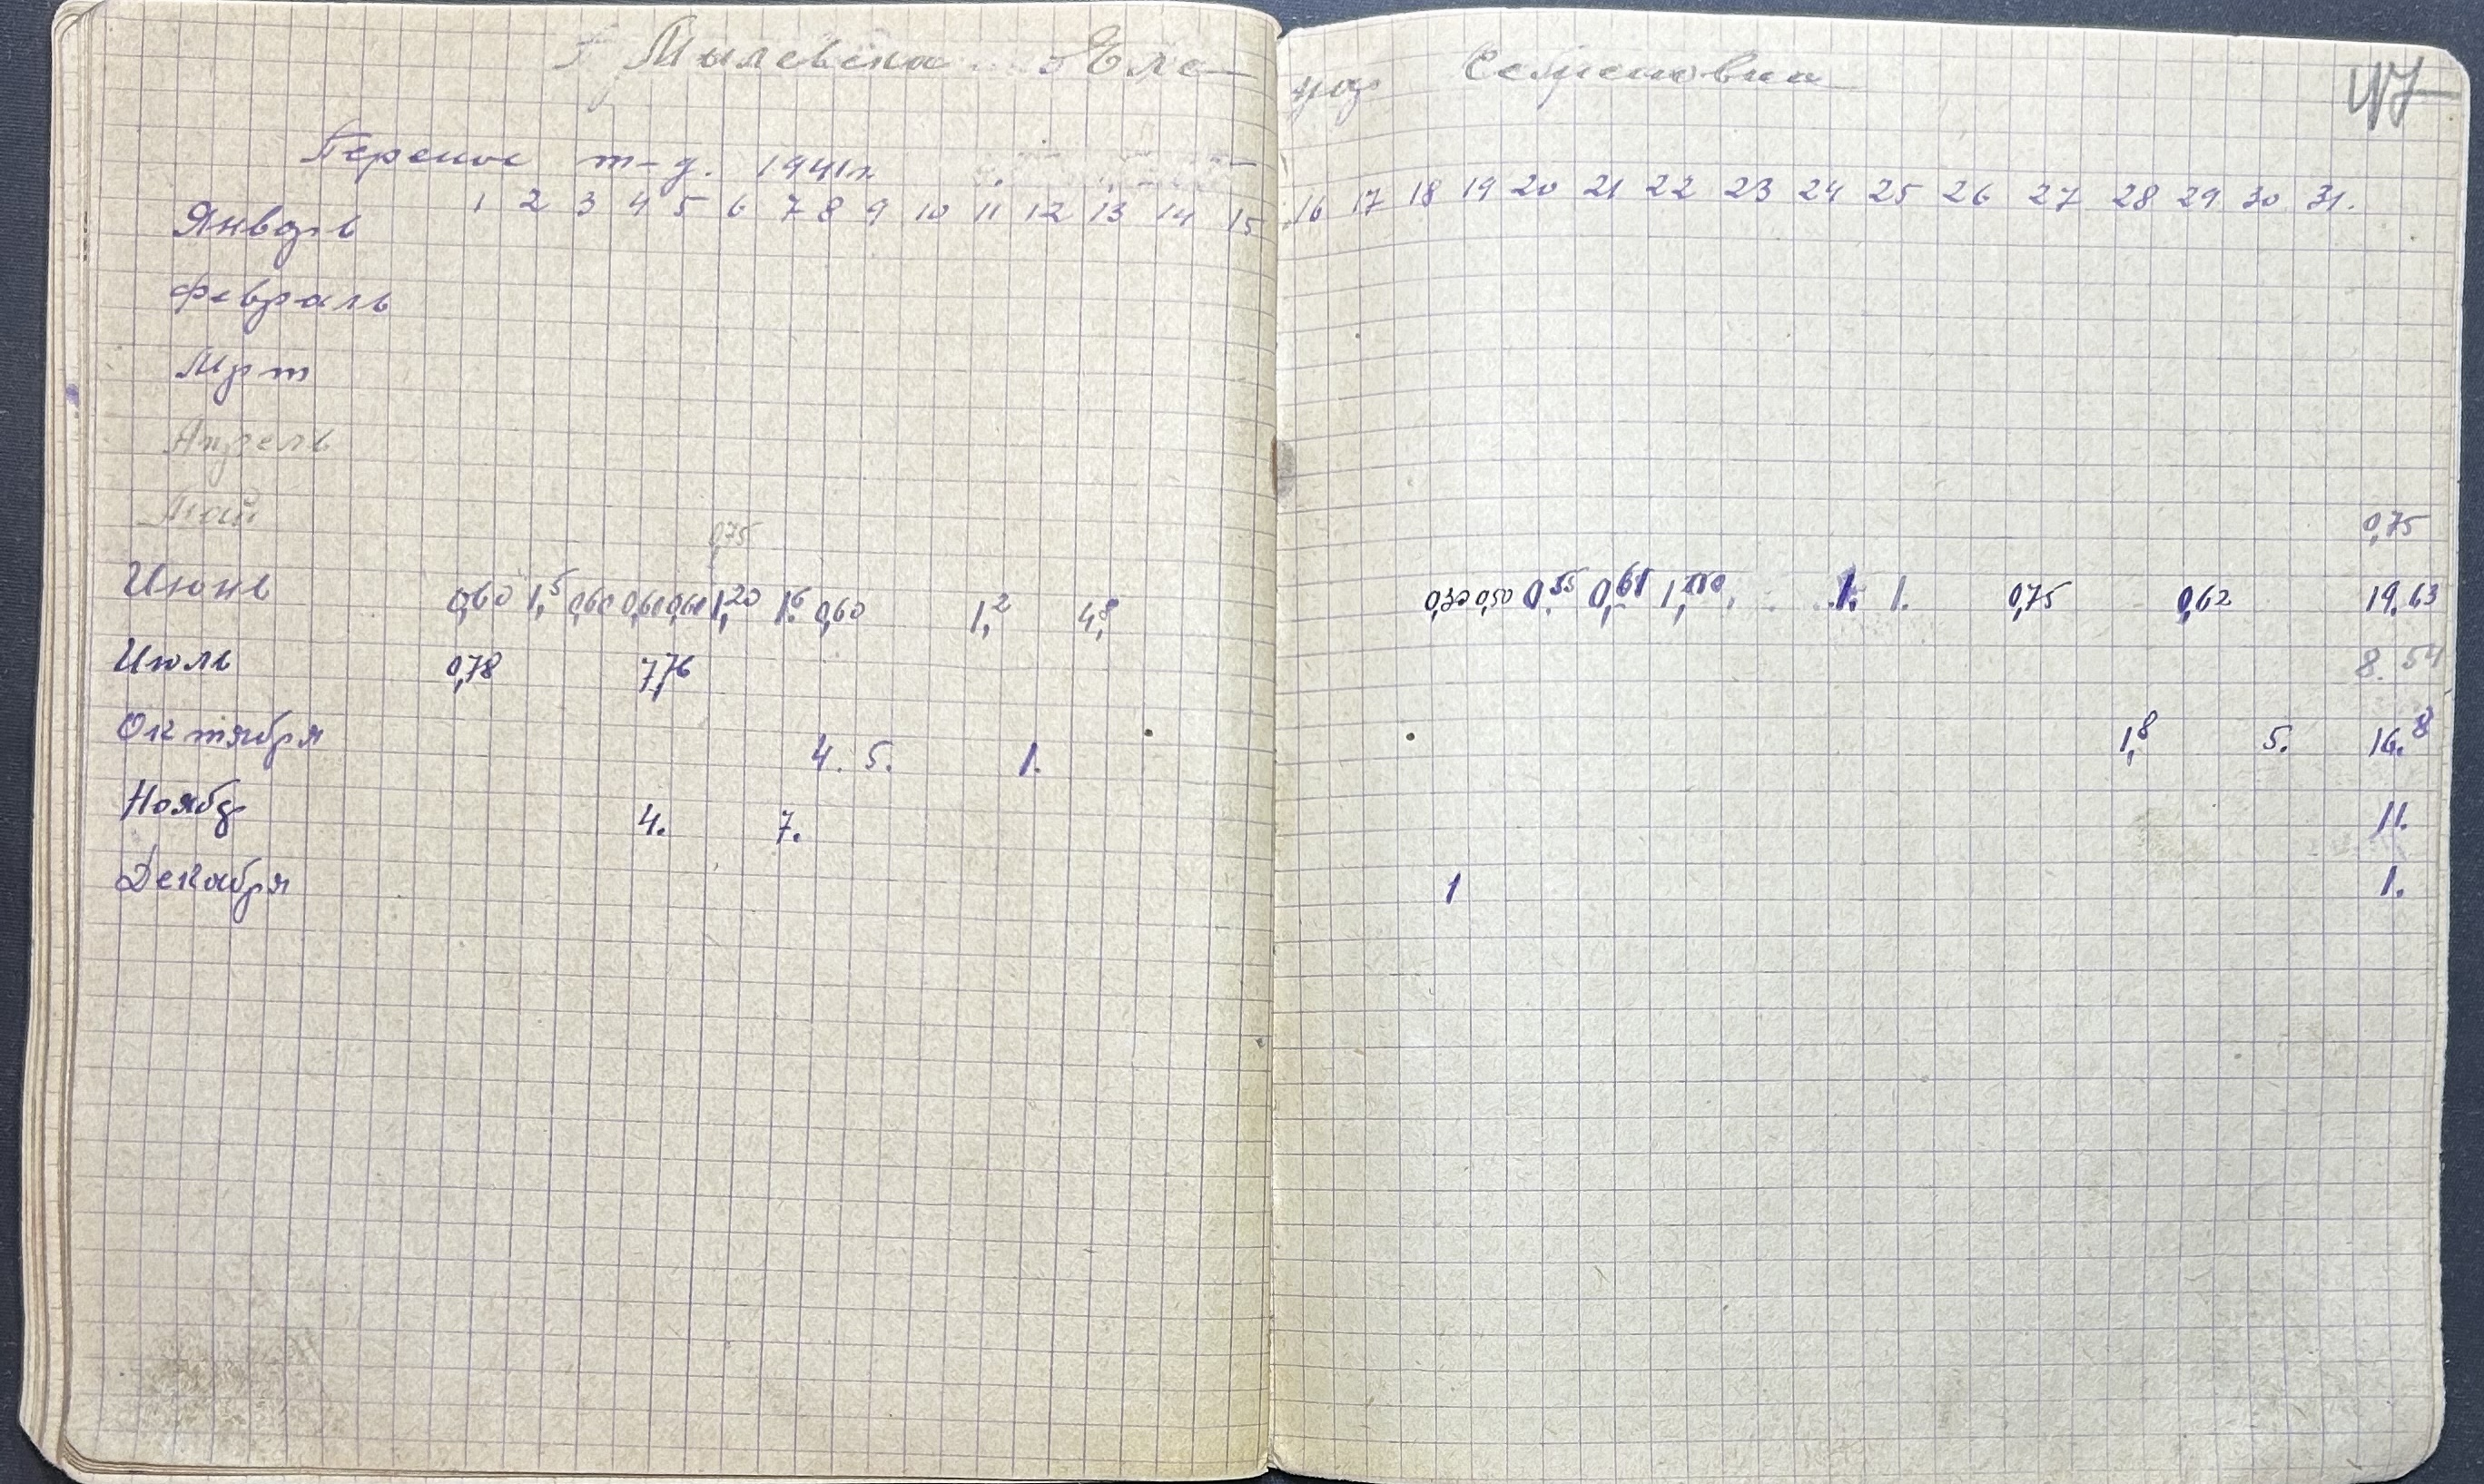 Мылевска Еле
47
Перенос т-д. 1941г
1 2 3 4 5 6 7 8 9 10 11 12 13 14 15 16 17 18 19 20 21 22 23 24 25 26 27 28 29 30 31.
Январь
Февраль
Мрт
Апрель
Май 0,75
0,75
Июнь 0,60 1,5 0,60 0,60 0,60 1,20 1.6 0,60 1,2 4,8 0,30 0,50 0,55 0,61 1. 1. 0,75 0,62 19.63
Июль 0,78 7,76 8.54
Октября 4. 5. 1. 1,8 5. 16.8
Ноябр 4. 7. 11.
Декабря 1 1.